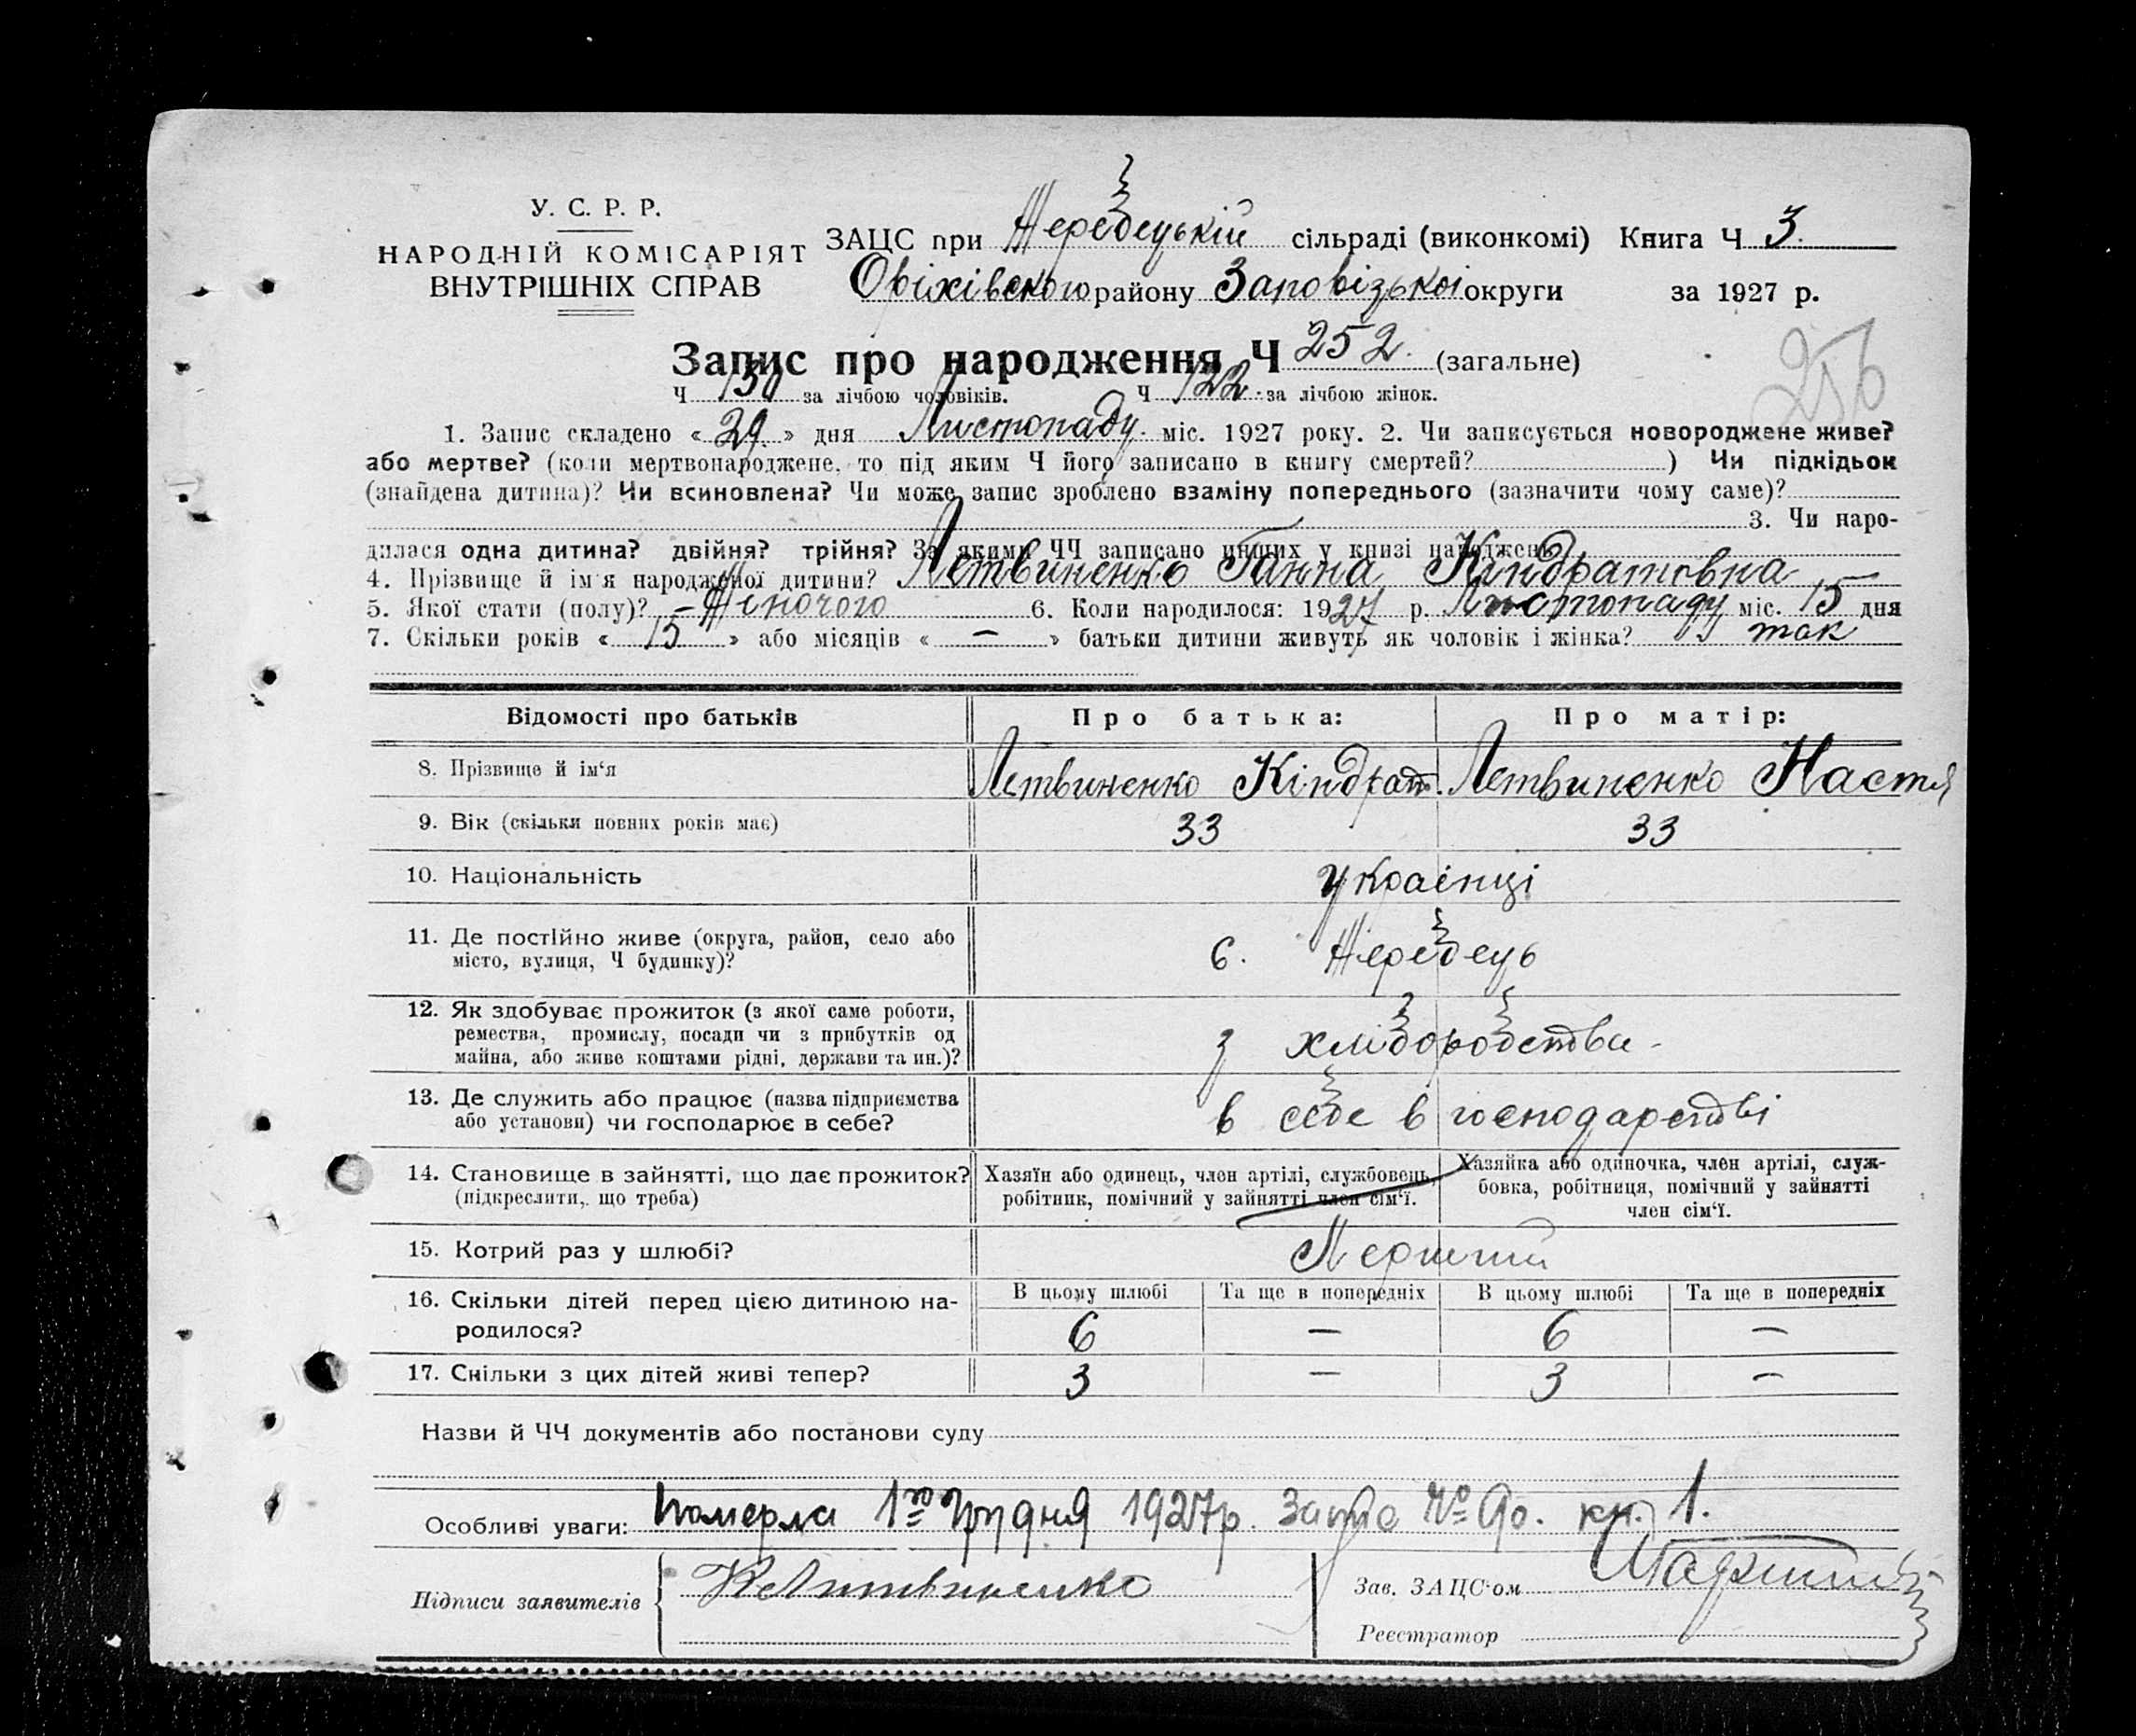 У. С. Р. Р.
НАРОДНІЙ КОМІСАРІЯТ
ВНУТРІШНІХ СПРАВ
ЗАЦС при Жеребецькій сільраді (виконкомі) Книга Ч 3.
Оріхівского району Запорізькоі округи за 1927 р.
Запис про народження Ч 252. (загальне)
256
Ч 130 за лічбою чоловіків. Ч 122. за лічбою жінок.
1. Запис складено « 29. » дня Листопаду міс. 1927 року. 2. Чи записується новороджене живе?
або мертве? (коли мертвонароджене, то під яким Ч його записано в книгу смертей? ) Чи підкідьок
(знайдена дитина)? Чи всиновлена? Чи може запис зроблено взаміну попереднього (зазначити чому саме)?
3. Чи наро-
дилася одна дитина? двійня? трійня? За якими ЧЧ записано инших у книзі народжень
4. Прізвище й ім'я народженої дитини? Летвиненко Ганна Кіндратовна
5. Якої стати (полу)? – Жіночого 6. Коли народилося: 1927 р. Листопаду міс. 15 дня
7. Скільки років « 15 » або місяців « — » батьки дитини живуть як чоловік і жінка? так
Відомості про батьків Про батька: Про матір:
8. Прізвище й ім'я Летвиненко Кіндрат. Летвиненко Настя
9. Вік (скільки повних років має) 33 33
10. Національність украінці
11. Де постійно живе (округа, район, село або
місто, вулиця, Ч будинку)?
с. Жеребець
12. Як здобуває прожиток (з якої саме роботи,
ремества, промислу, посади чи з прибутків од
майна, або живе коштами рідні, держави та ин.)?
з хліборобства
13. Де служить або працює (назва підприємства
або установи) чи господарює в себе?
в себе в господарстві
14. Становище в зайнятті, що дає прожиток?
(підкреслити, що треба)
Хазяїн або одинець, член артілі, службовець,
робітник, помічний у зайнятті член сім'ї.
Хазяйка або одиночка, член артілі, служ-
бовка, робітниця, помічний у зайнятті
член сім'ї.
15. Котрий раз у шлюбі? Перший
16. Скільки дітей перед цією дитиною на-
родилося?
В цьому шлюбі Та ще в попередніх В цьому шлюбі Та ще в попередніх
6 — 6 —
17. Скільки з цих дітей живі тепер? 3 — 3 —
Назви й ЧЧ документів або постанови суду
Особливі уваги: Померла 1го Грудня 1927р. Запис № 90. кн. 1.
Підписи заявителів К Литвиненко
Зав. ЗАЦС·ом
Реєстратор